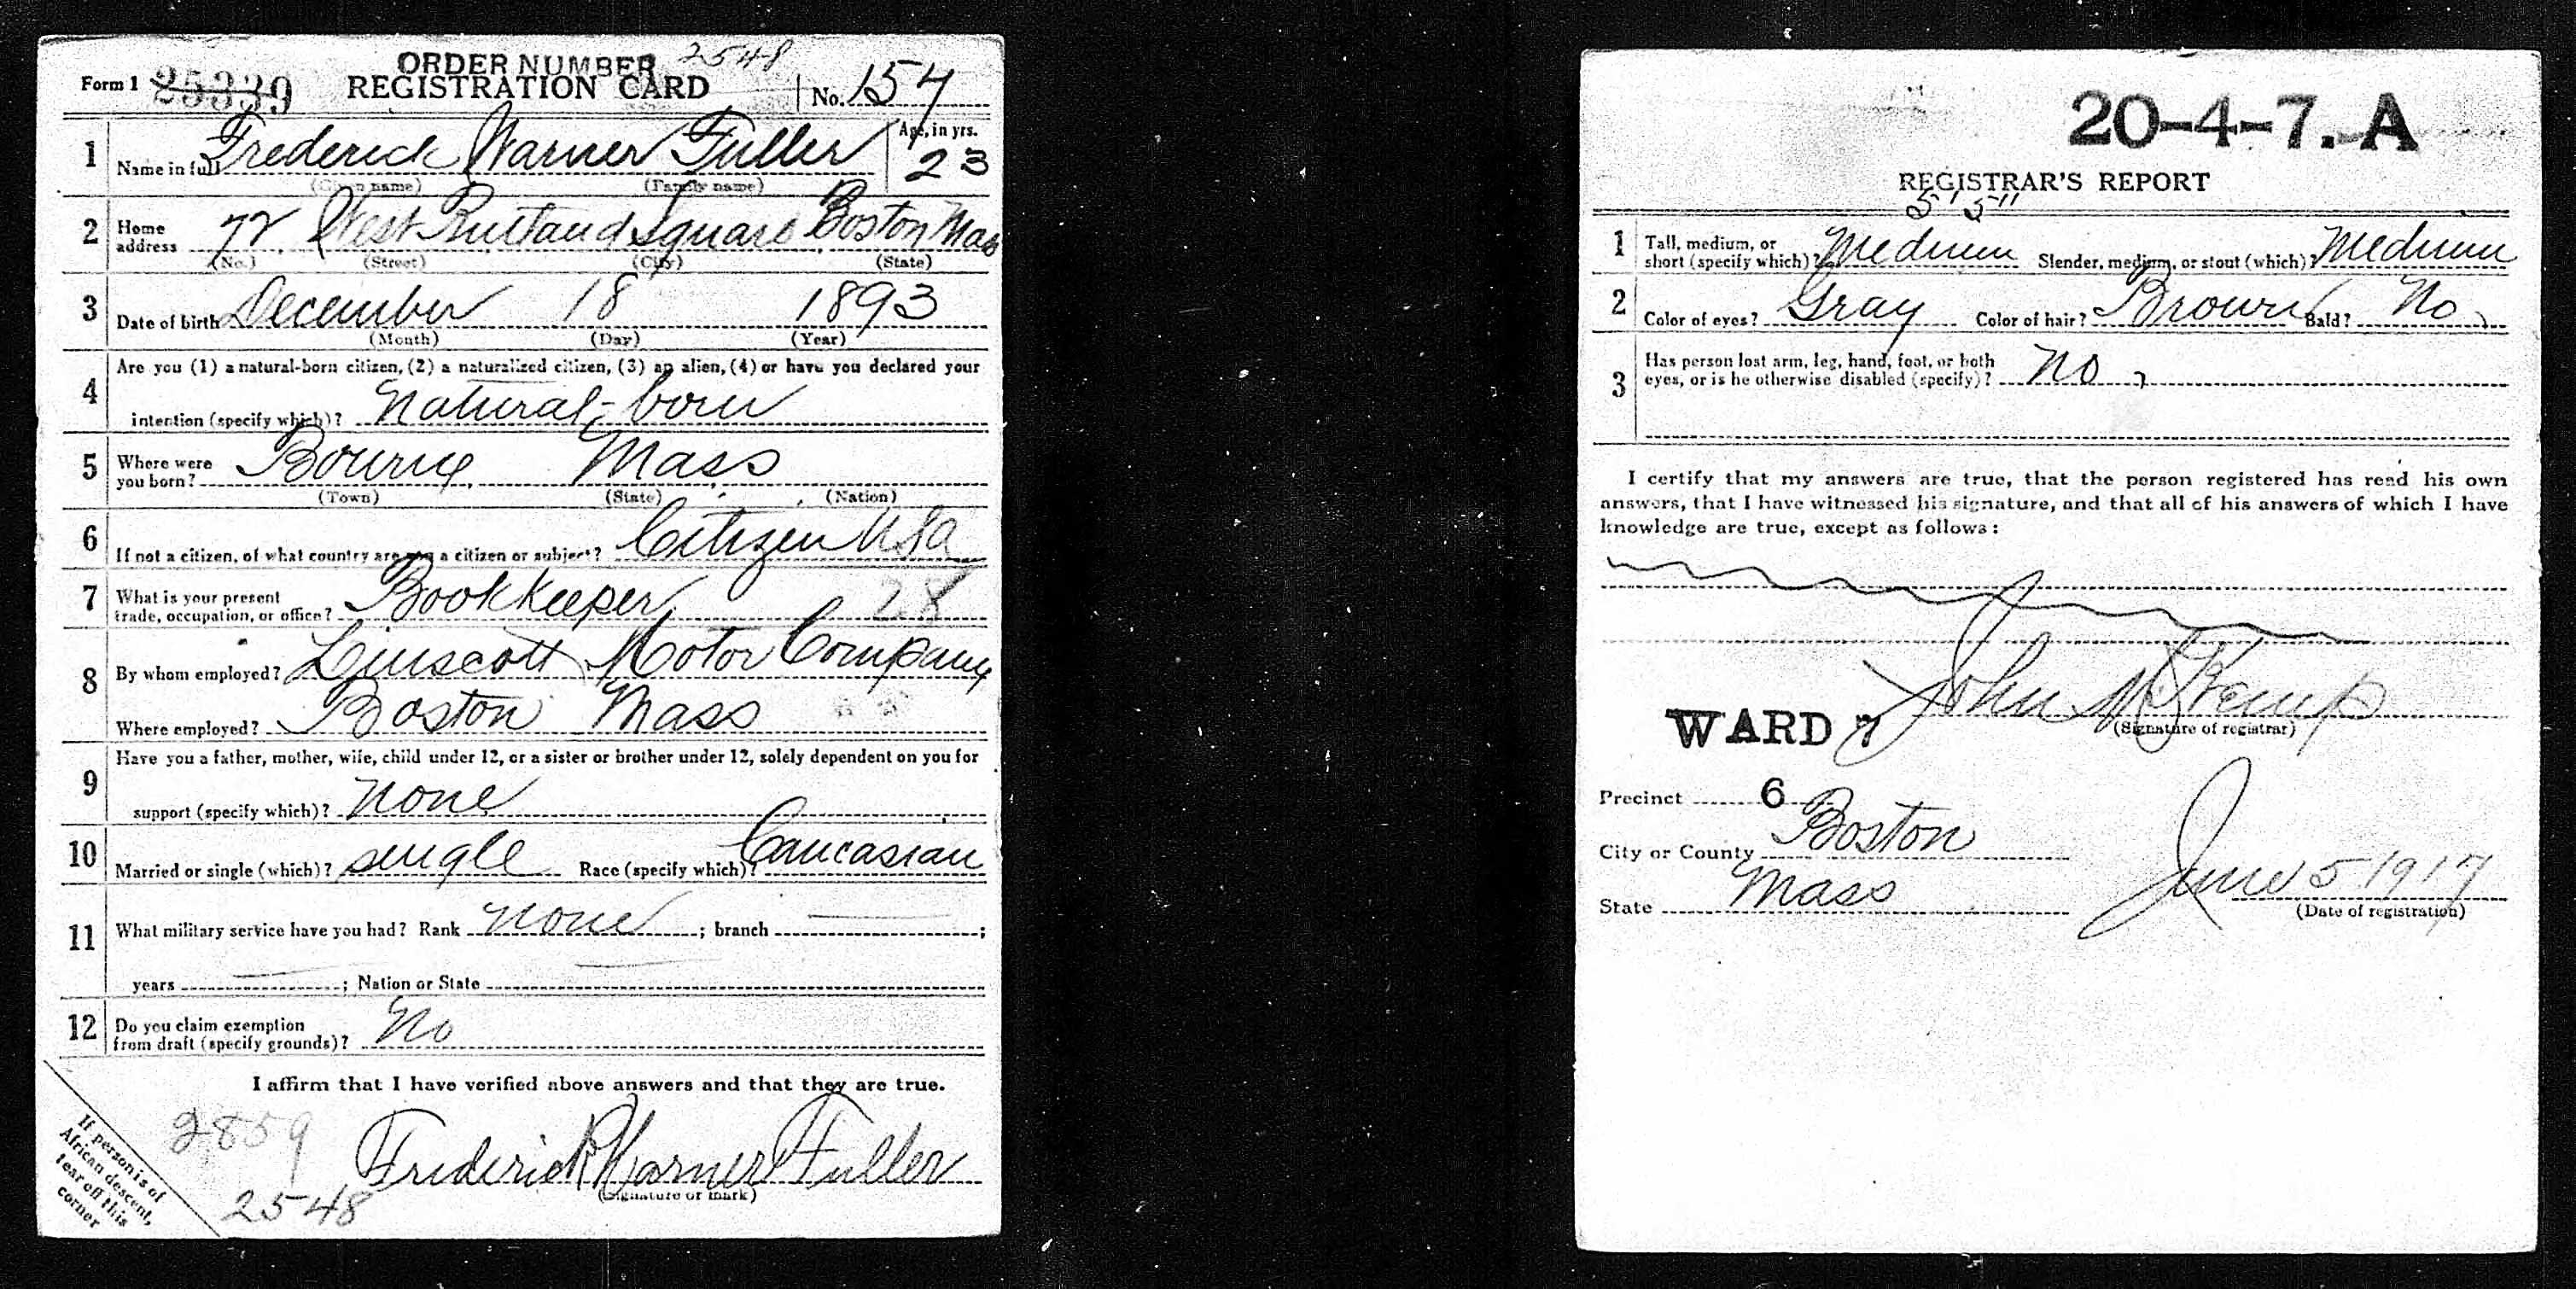 ORDER NUMBER 2548
Form 1 25339 REGISTRATION CARD No. 154
1 Name in full Frederick Warner Fuller Age, in yrs. 23
(Given name) (Family name)
2 Home address 72 West Rutland Square Boston Mass
(No.) (Street) (City) (State)
3 Date of birth December 18 1893
(Month) (Day) (Year)
4 Are you (1) a natural-born citizen, (2) a naturalized citizen, (3) an alien, (4) or have you declared your
intention (specify which)? Natural-born
5 Where were you born? Bourne Mass
(Town) (State) (Nation)
6 If not a citizen, of what country are you a citizen or subject? Citizen USA
7 What is your present trade, occupation, or office? Bookkeeper 28
8 By whom employed? Linscott Motor Company
Where employed? Boston Mass
9 Have you a father, mother, wife, child under 12, or a sister or brother under 12, solely dependent on you for
support (specify which)? None
10 Married or single (which)? single Race (specify which)? Caucasian
11 What military service have you had? Rank None ; branch ;
years ; Nation or State
12 Do you claim exemption from draft (specify grounds)? No
I affirm that I have verified above answers and that they are true.
If person is of
African descent,
tear off this
corner
2859
Frederick Warner Fuller
(Signature or mark)
2548
20-4-7. A
REGISTRAR'S REPORT
5' 5"
1 Tall, medium, or short (specify which)? Medium Slender, medium, or stout (which)? Medium
2 Color of eyes? Gray Color of hair? Brown Bald? No
3 Has person lost arm, leg, hand, foot, or both
eyes, or is he otherwise disabled (specify)? No
I certify that my answers are true, that the person registered has read his own
answers, that I have witnessed his signature, and that all of his answers of which I have
knowledge are true, except as follows:
John M Kemp
WARD 7
(Signature of registrar)
Precinct 6
City or County Boston
State Mass June 5 1917
(Date of registration)